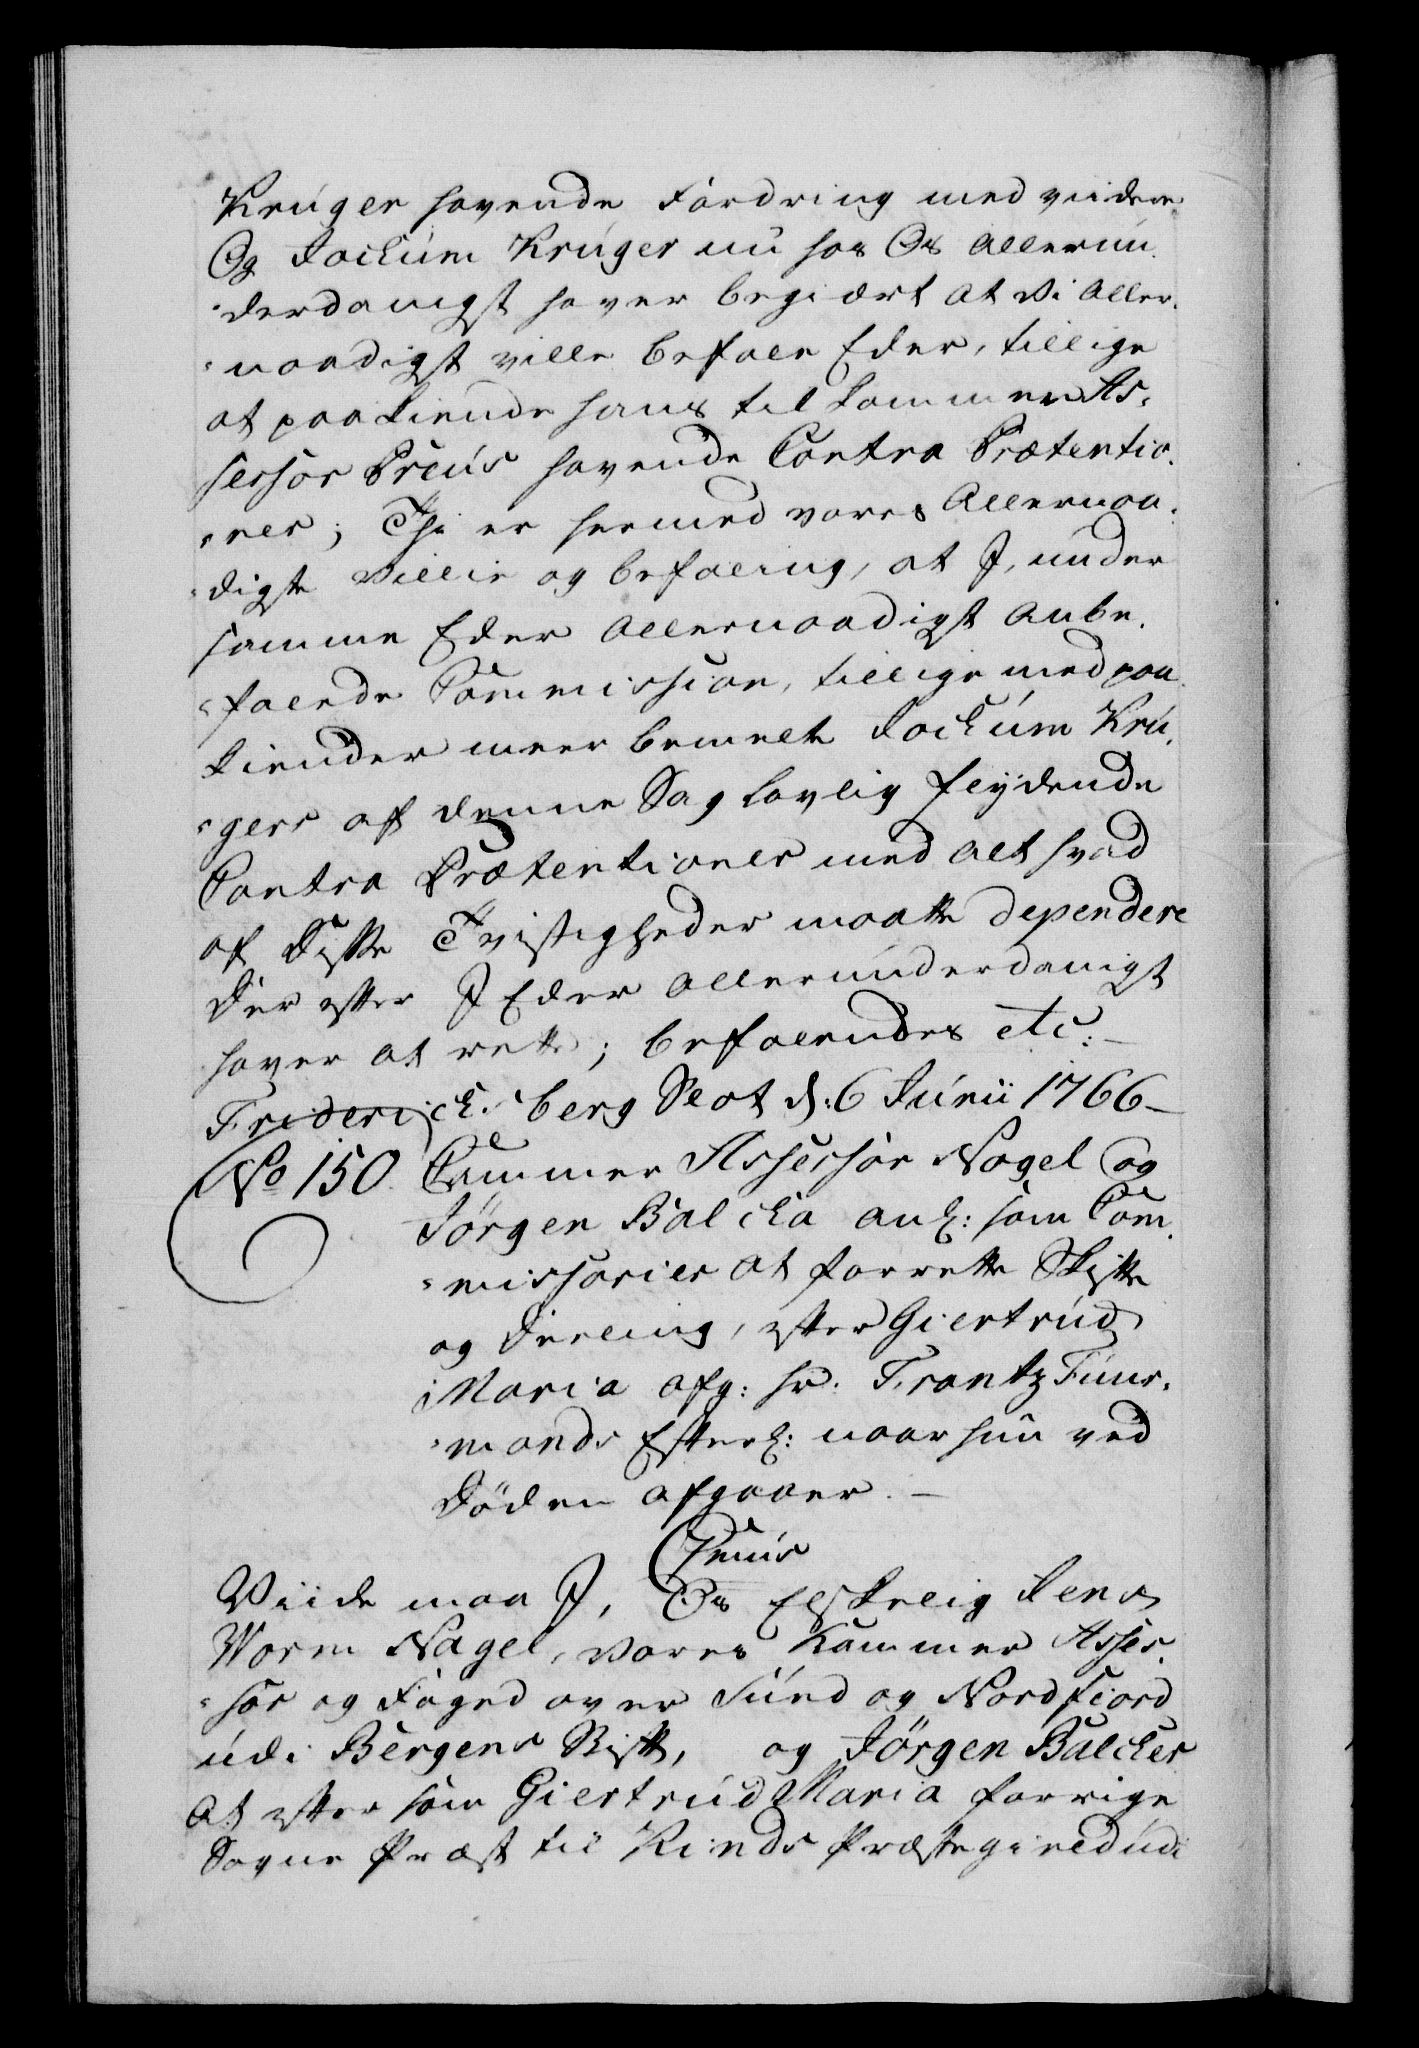 Krúger havende Fordring med viidere
Og Jochúm Krúger nú hos Os allerún-
-derdanigst haver begiært at Vi Aller-
-naadigst ville befale Eder, tillige
at paakiende hans til Kammer As-
sessor Preús havende Contra Prætentio-
-ner; Thi er hermed vores Allernaa-
-digste Villie og befaling, at I, únder
samme Eder allernaadigst anbe-
-falende Commission, tillige med paa-
kiender meer bemelte Jochúm Krú-
-gers af denne Sag lovlig flydende
Contra Prætentioner med alt hvad
af disse Tvistigheder maatte dependere
Der efter I Eder allerúnderdanigst
haver at rette; befalendes etc: —
Friderichsberg Slot d: 6 Júnii 1766 —
No 150. Cammer Assessor Nagel og
Jörgen Balcka anl: som Com-
-missarier at forrette Skifte
og Deeling, efter Giertrúd
Maria afg: hr. Frantz Fúur-
-mands Efterl: naar hún ved
Döden afgaaer. —
Cúus
Viide maa I, Os Elskelig Jens
Worm Nagel, vores Kammer Asses-
-sor og Foged over Súnd og Nordfiord
údi Bergens Stift, og Jörgen Balcker
At efter som Giertrúd Maria forrige
Sogne Præst til Kinds Præstegield údi